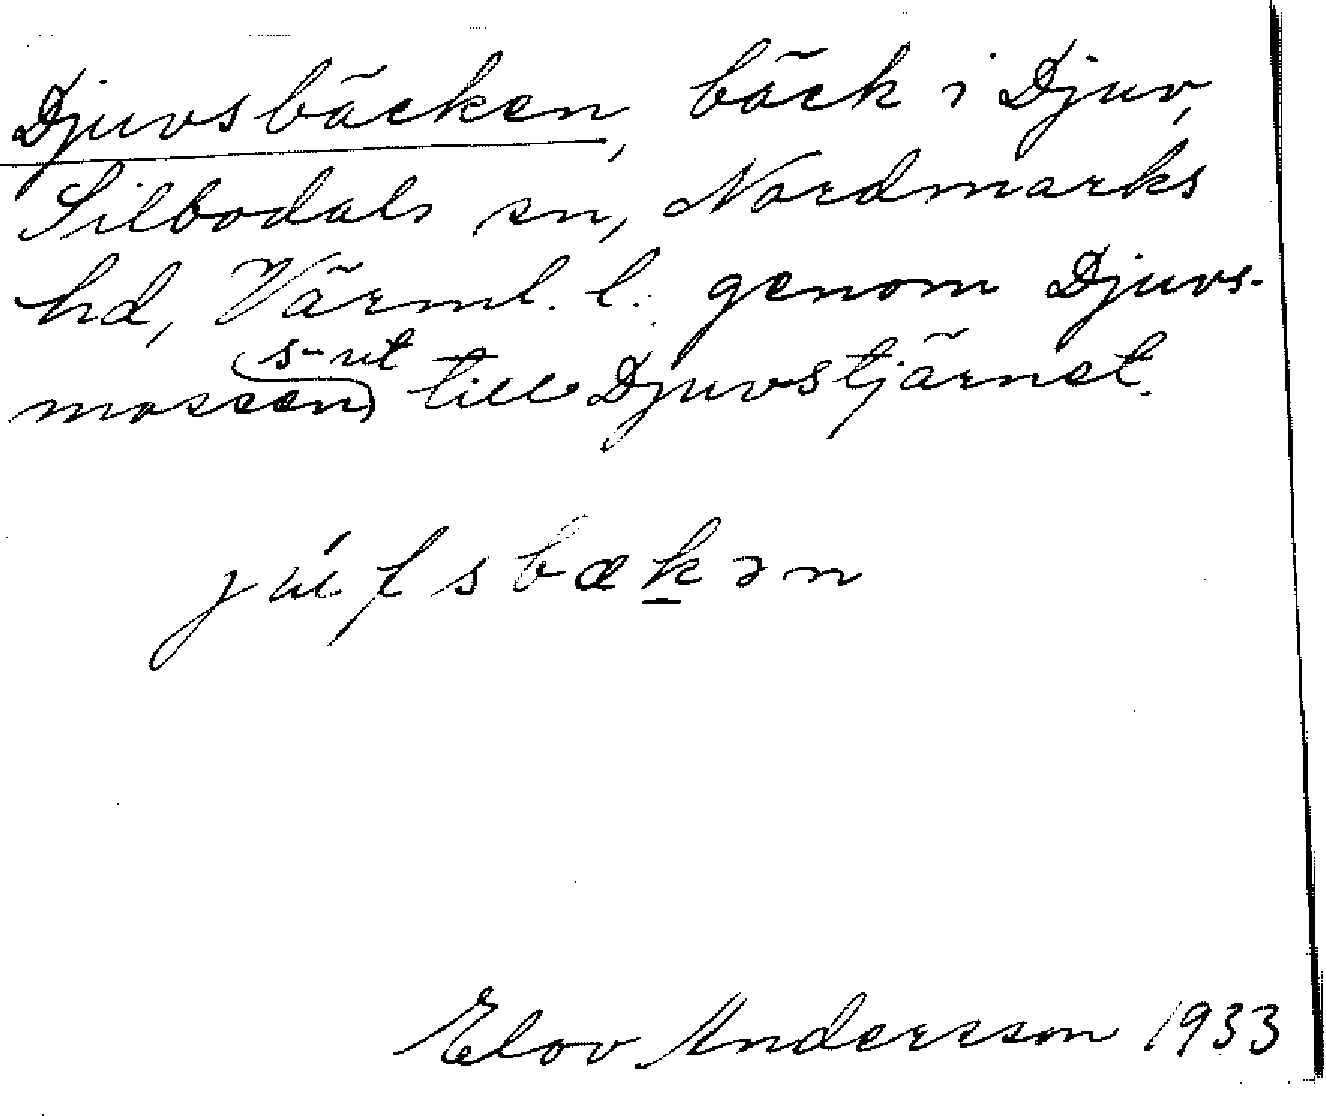 Djuvsbäcken, bäck i Djuv,
Silbodals sn, Nordmarks
hd, Värml. l. genom Djuvs-
s-ut
mossen till Djuvstjärnet.
júfsbækən
Elov Andersson 1933